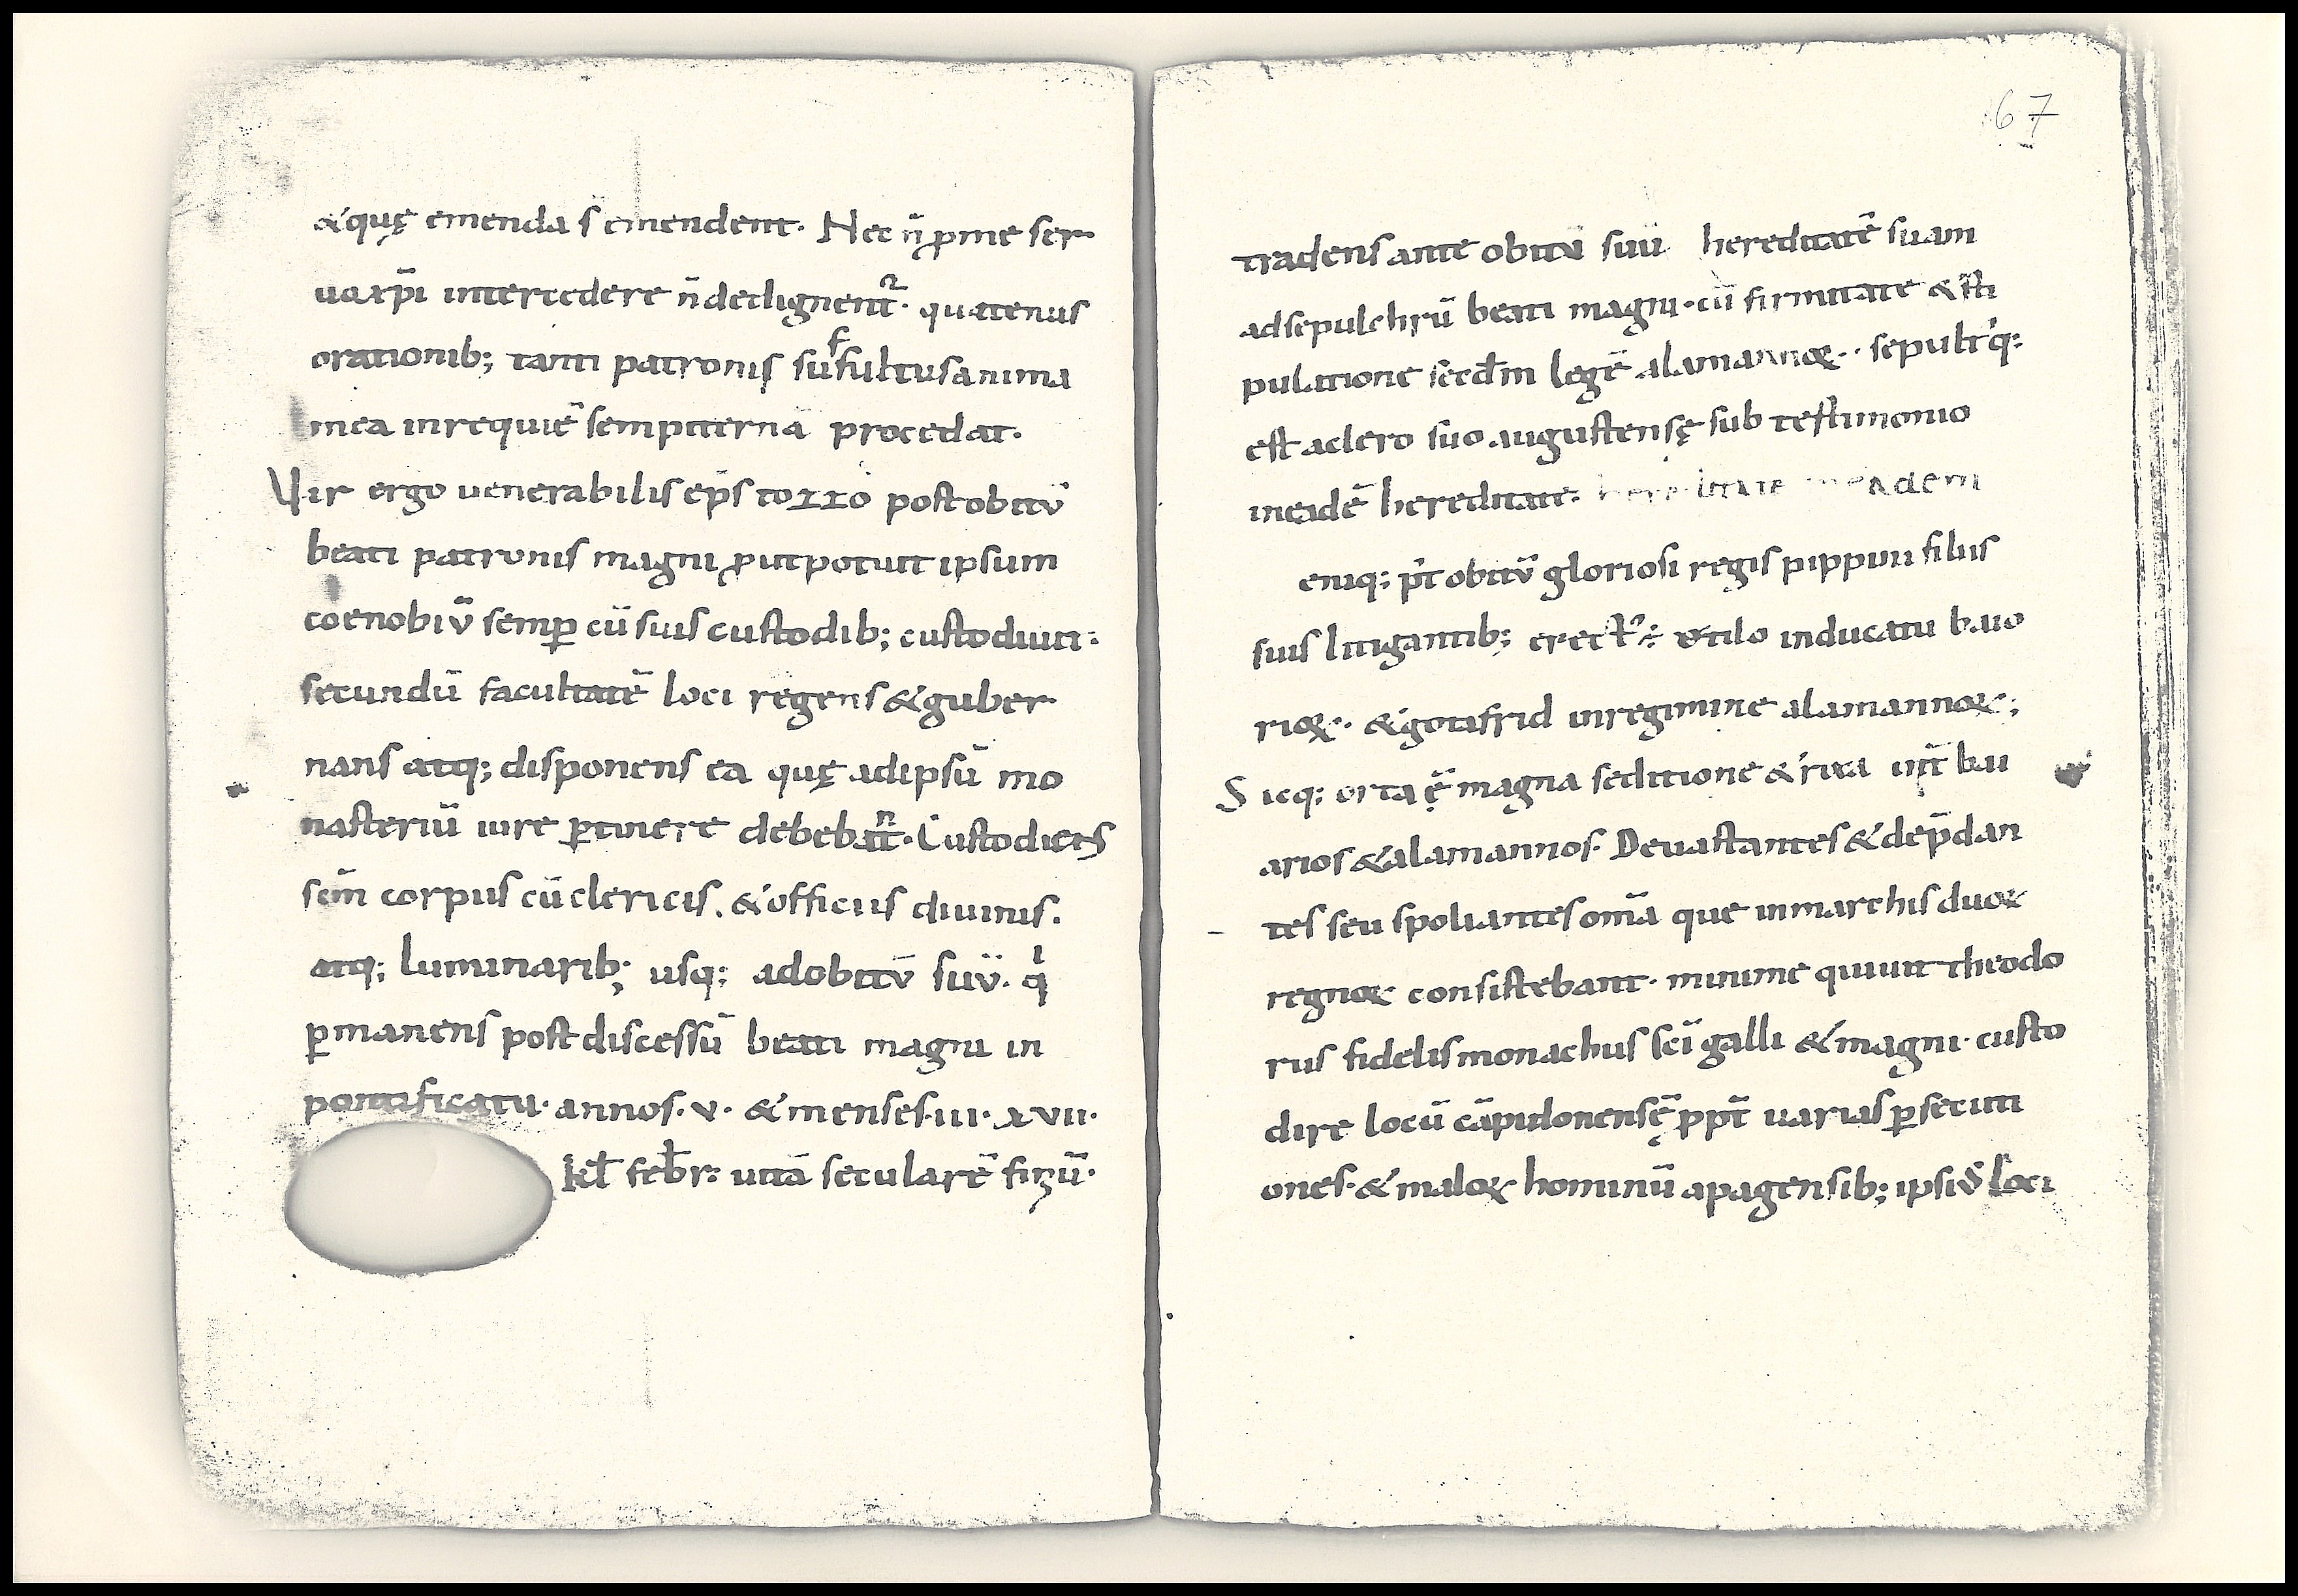 &quę emenda s̄ emendent. Nec n̄ p̱ me ser
uo xp̄i intercedere n̄ dedignent᷑. quatenus
orationib; tanti patronis suffultus anima
mea in requiē sempiternā procedat.
Vir ergo uenerabilis ep̄s tozzo post obitū
beati patronis magni p̱ut potuit ipsum
coenobiū semp̱ cū suis custodib; custodiuit.
secundū facultatē loci regens & guber
nans atq; disponens ea quę ad ipsū mo
nasteriū iure p̱tinere debebant. Custodiens
sc̄m corpus cū clericis. & officiis diuinis.
atq; luminarib; usq; ad obitū suū. qi
p̱manens post discessū beati magni in
pontificatu. annos. v. & menses. iii. xvii.
kl̄ febr: uitā secularē finiū.
67
tradens ante obitū suū hereditatē suam
ad sepulchrū beati magni. cū firmitate & sti
pulatione secdm̄ legē alamannoꝝ. sepultꝰq;
est a clero suo augustensę sub testimonio
in eadē hereditate.
eniq; p̄t obitū gloriosi regis pippini filiis
suis litigantib; erect᷑ ē utilo in ducatu baio
rioꝝ. & gotafrid in regimine alamannoꝝ;
Sicq; orta ē magna seditione & rixa int̄ bai
arios & alamannos. Deuastantes & dep̄dan
tes seu spoliantes om̄a que in marchis duoꝝ
regnoꝝ consistebant. minime quiuit theodo
rus fidelis monachus sc̄i galli & magni. custo
dire locū cāpidonensę̄ p̱pt̄ uarias p̱secuti
ones. & maloꝝ hominū a pagensib; ipsiꝰ loci